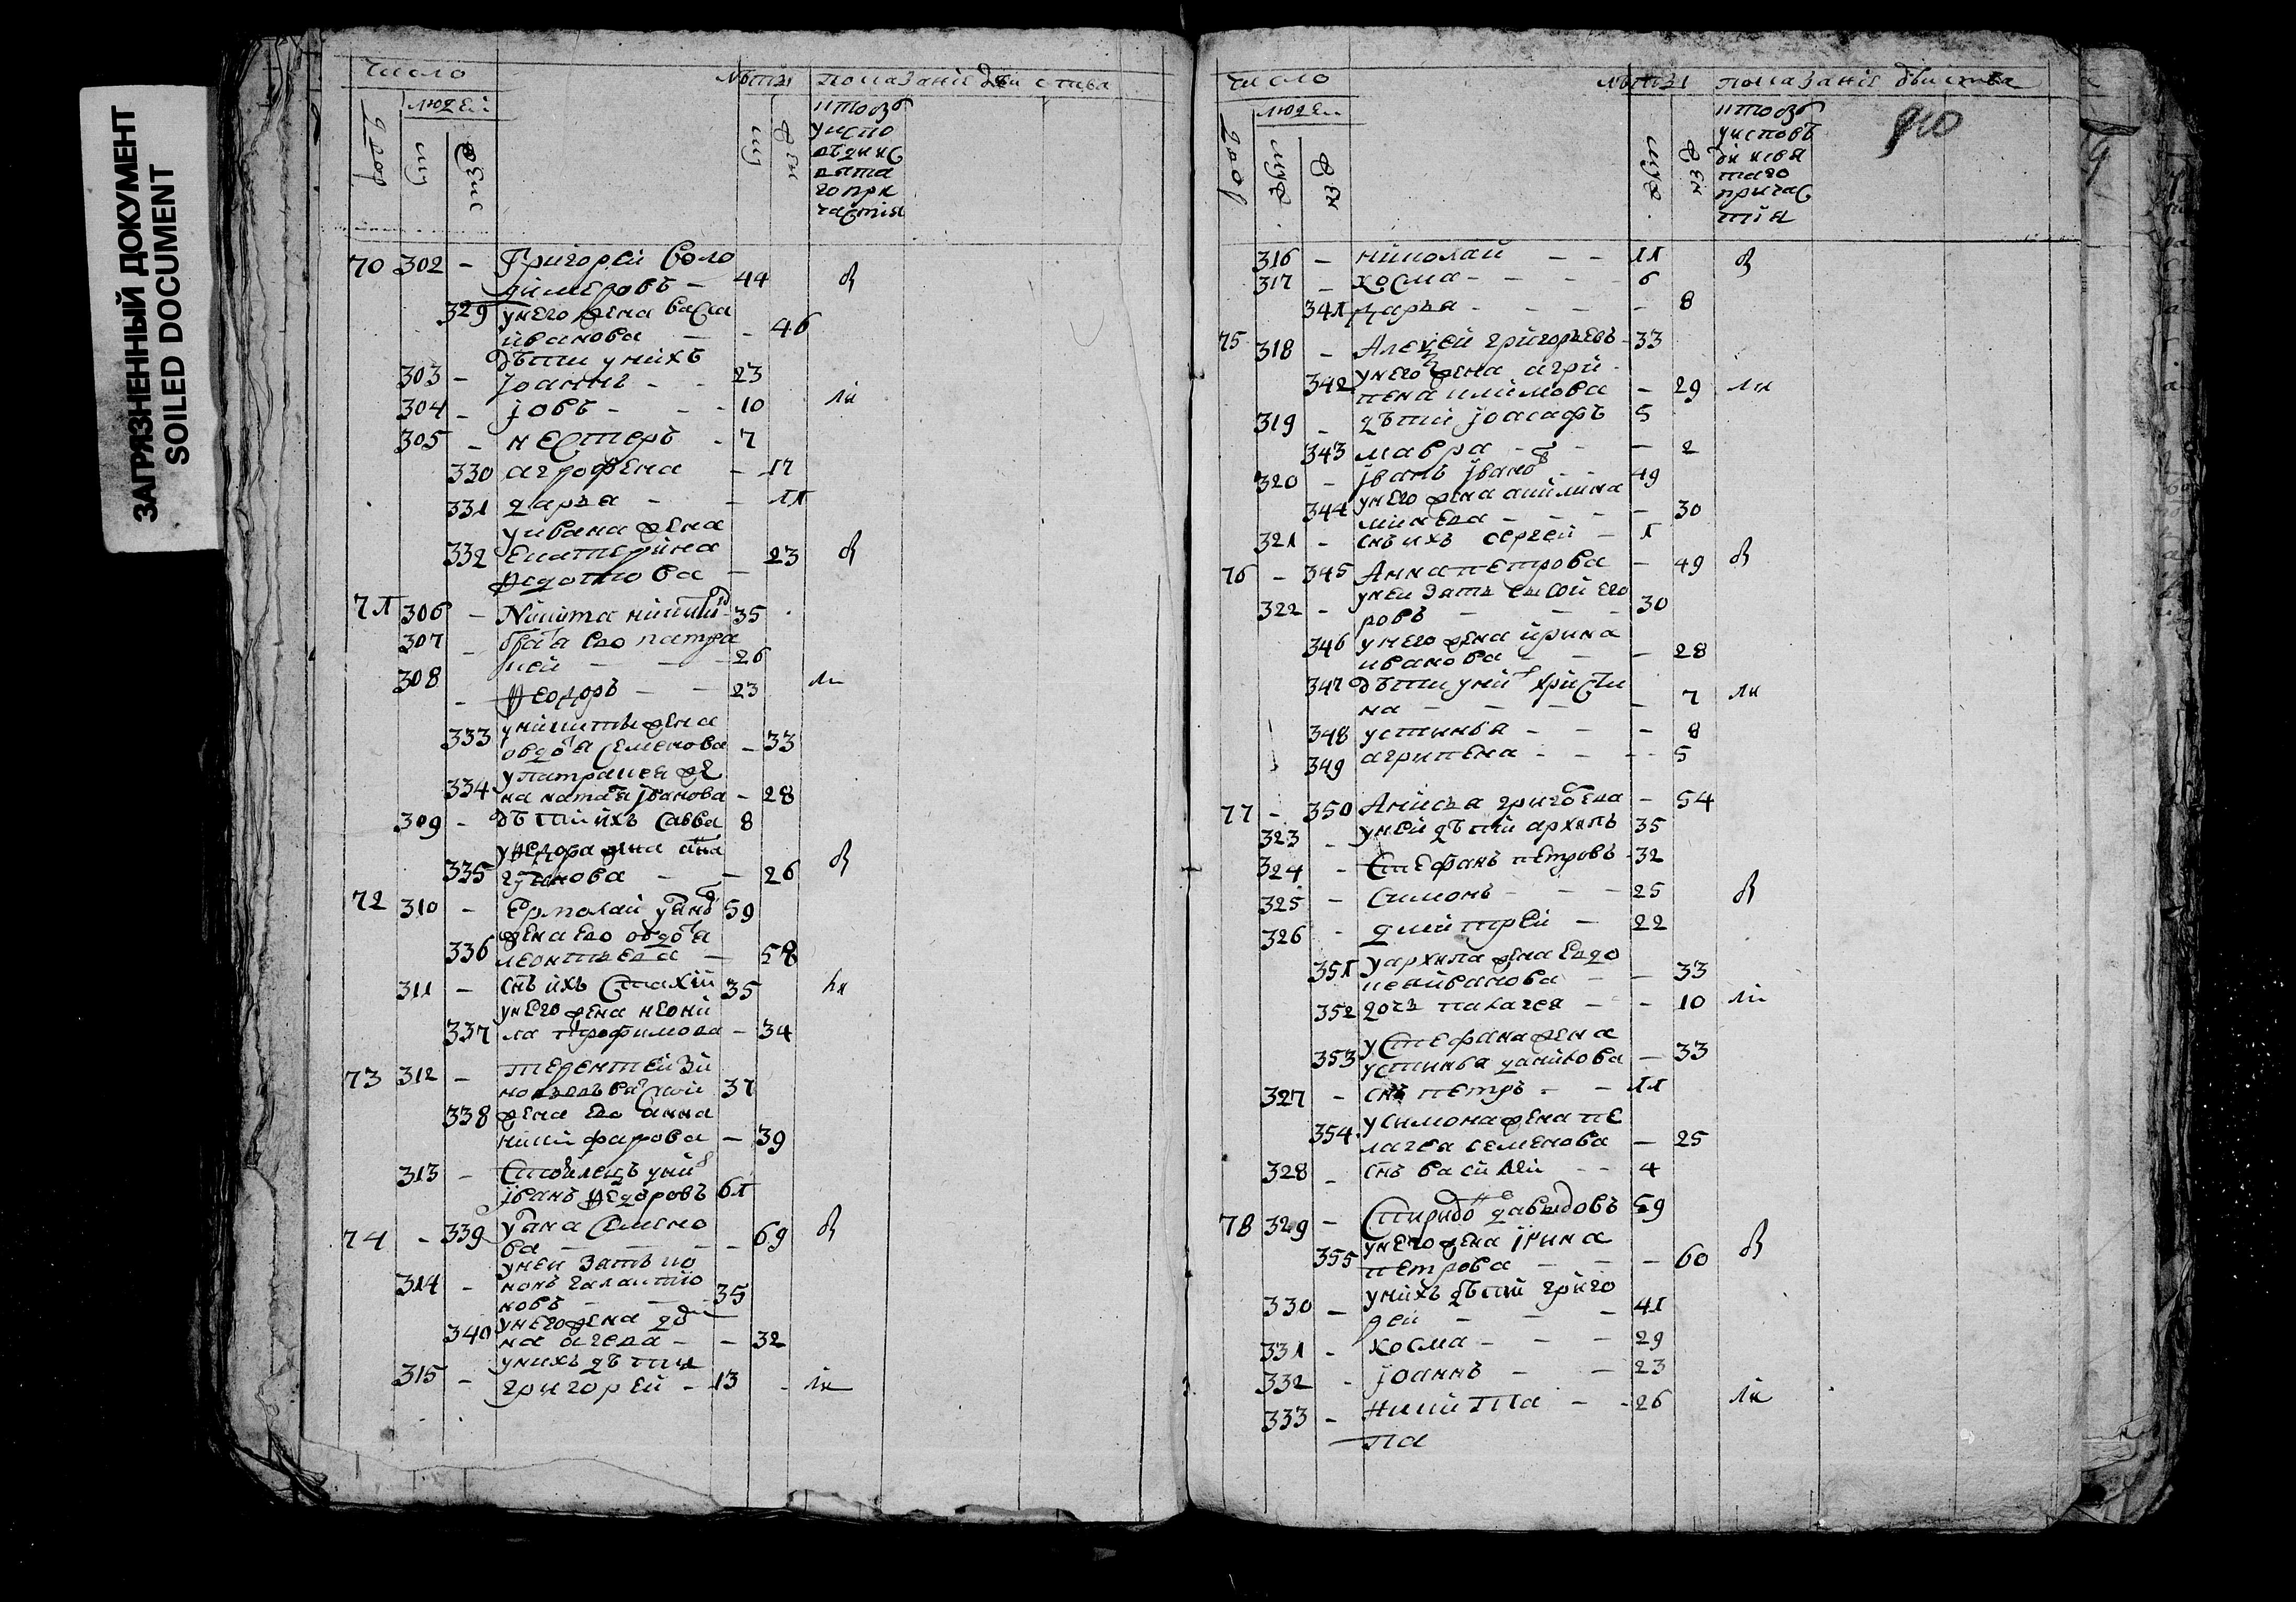 ЗАГРЯЗНЕННЫЙ ДОКУМЕНТ
SOILED DOCUMENT
число лѣты показаніе дѣйства
двор людей муж женс муж жен
ктоовъ
уиспо
вѣди и с
вята
го при
частія
70 302 – Григорей Воло
димеровъ – 44 в
329 унего жена Васса
иванова – 46
дѣти унихъ
303 – Іоаннъ – 23
304 – Іовъ – 10
305 – нестеръ – 7
330 агрофена – 17
331 дарья – 11
уивана жена
332 Екатерина 23 в
Федотова
71 306 – Никита никити 35
307 – братя ево патра
кей – 26
308 – Феодоръ – 23
уникиты жена
333 овдотя Семенова – 33
упатракея же
334 на наталя Іванова – 28
309 – дѣти ихъ Савва 8
уфедора жена
335 26 в
72 310 – Ермолай 59
жена ево овдотя
336 леонтьева – 58
311 – снъ ихъ Стахій 35
унего жена неони
337 ла трофимова – 34
73 312 – терентей Зи
новьевъ 37
338 жена ево анна
никифарова – 39
313 –
Іванъ Федоровъ 61
74 – 339 Семено
ва – 69 в
уней зять ко
314 – нонъ галактио
новъ – 35
340 унего жена
на агеева – 32
унихъ дѣти
315 – григорей – 13
число лѣты показаніе дѣйства
двор людей муж жен муж жен
ктоовъ 910
уисповѣ
ди исвя
таго
причас
тія
316 – николай – 11 в
317 – косма – 6
341 дарья – 8
75 318 – Алексей григорьевъ – 33
унего жена агри
342 пена климова – 29
319 – дѣти Іоасафъ 5
343 мавра – 2
320 – Іванъ Іванов 49
унего жена акилина
344 минеева – 30
321 – снъ ихъ сергей – 1
76 – 345 Анна петрова – 49 в
уней зять Сысой его
322 – ровъ – 30
346 унего жена ирина
иванова – 28
347 дѣти уних христи
на – 7
348 устинья – 8
349 агрипена – 5
77 – 350 Анисья григоева – 54
323 – уней дѣти архипъ 35
324 – Стефанъ петровъ – 32
325 – Симонъ – 25 в
326 – дмитрей – 22
уархипа жена Евдо
351 кея иванова – 33
352 дочь палагея – 10
уСтефана жена
353 устинья данилова – 33
327 – снъ петръ – 11
уСимона жена пе
354 лагея семенова – 25
328 – снъ василей – 4
78 329 – Спиридо давыдовъ 59
унего жена Ірина
355 петрова – 60 в
унихъ дѣти григо
330 – рей – 41
331 – косма – 29
332 – Іоаннъ – 23
333 – никита – 26
па